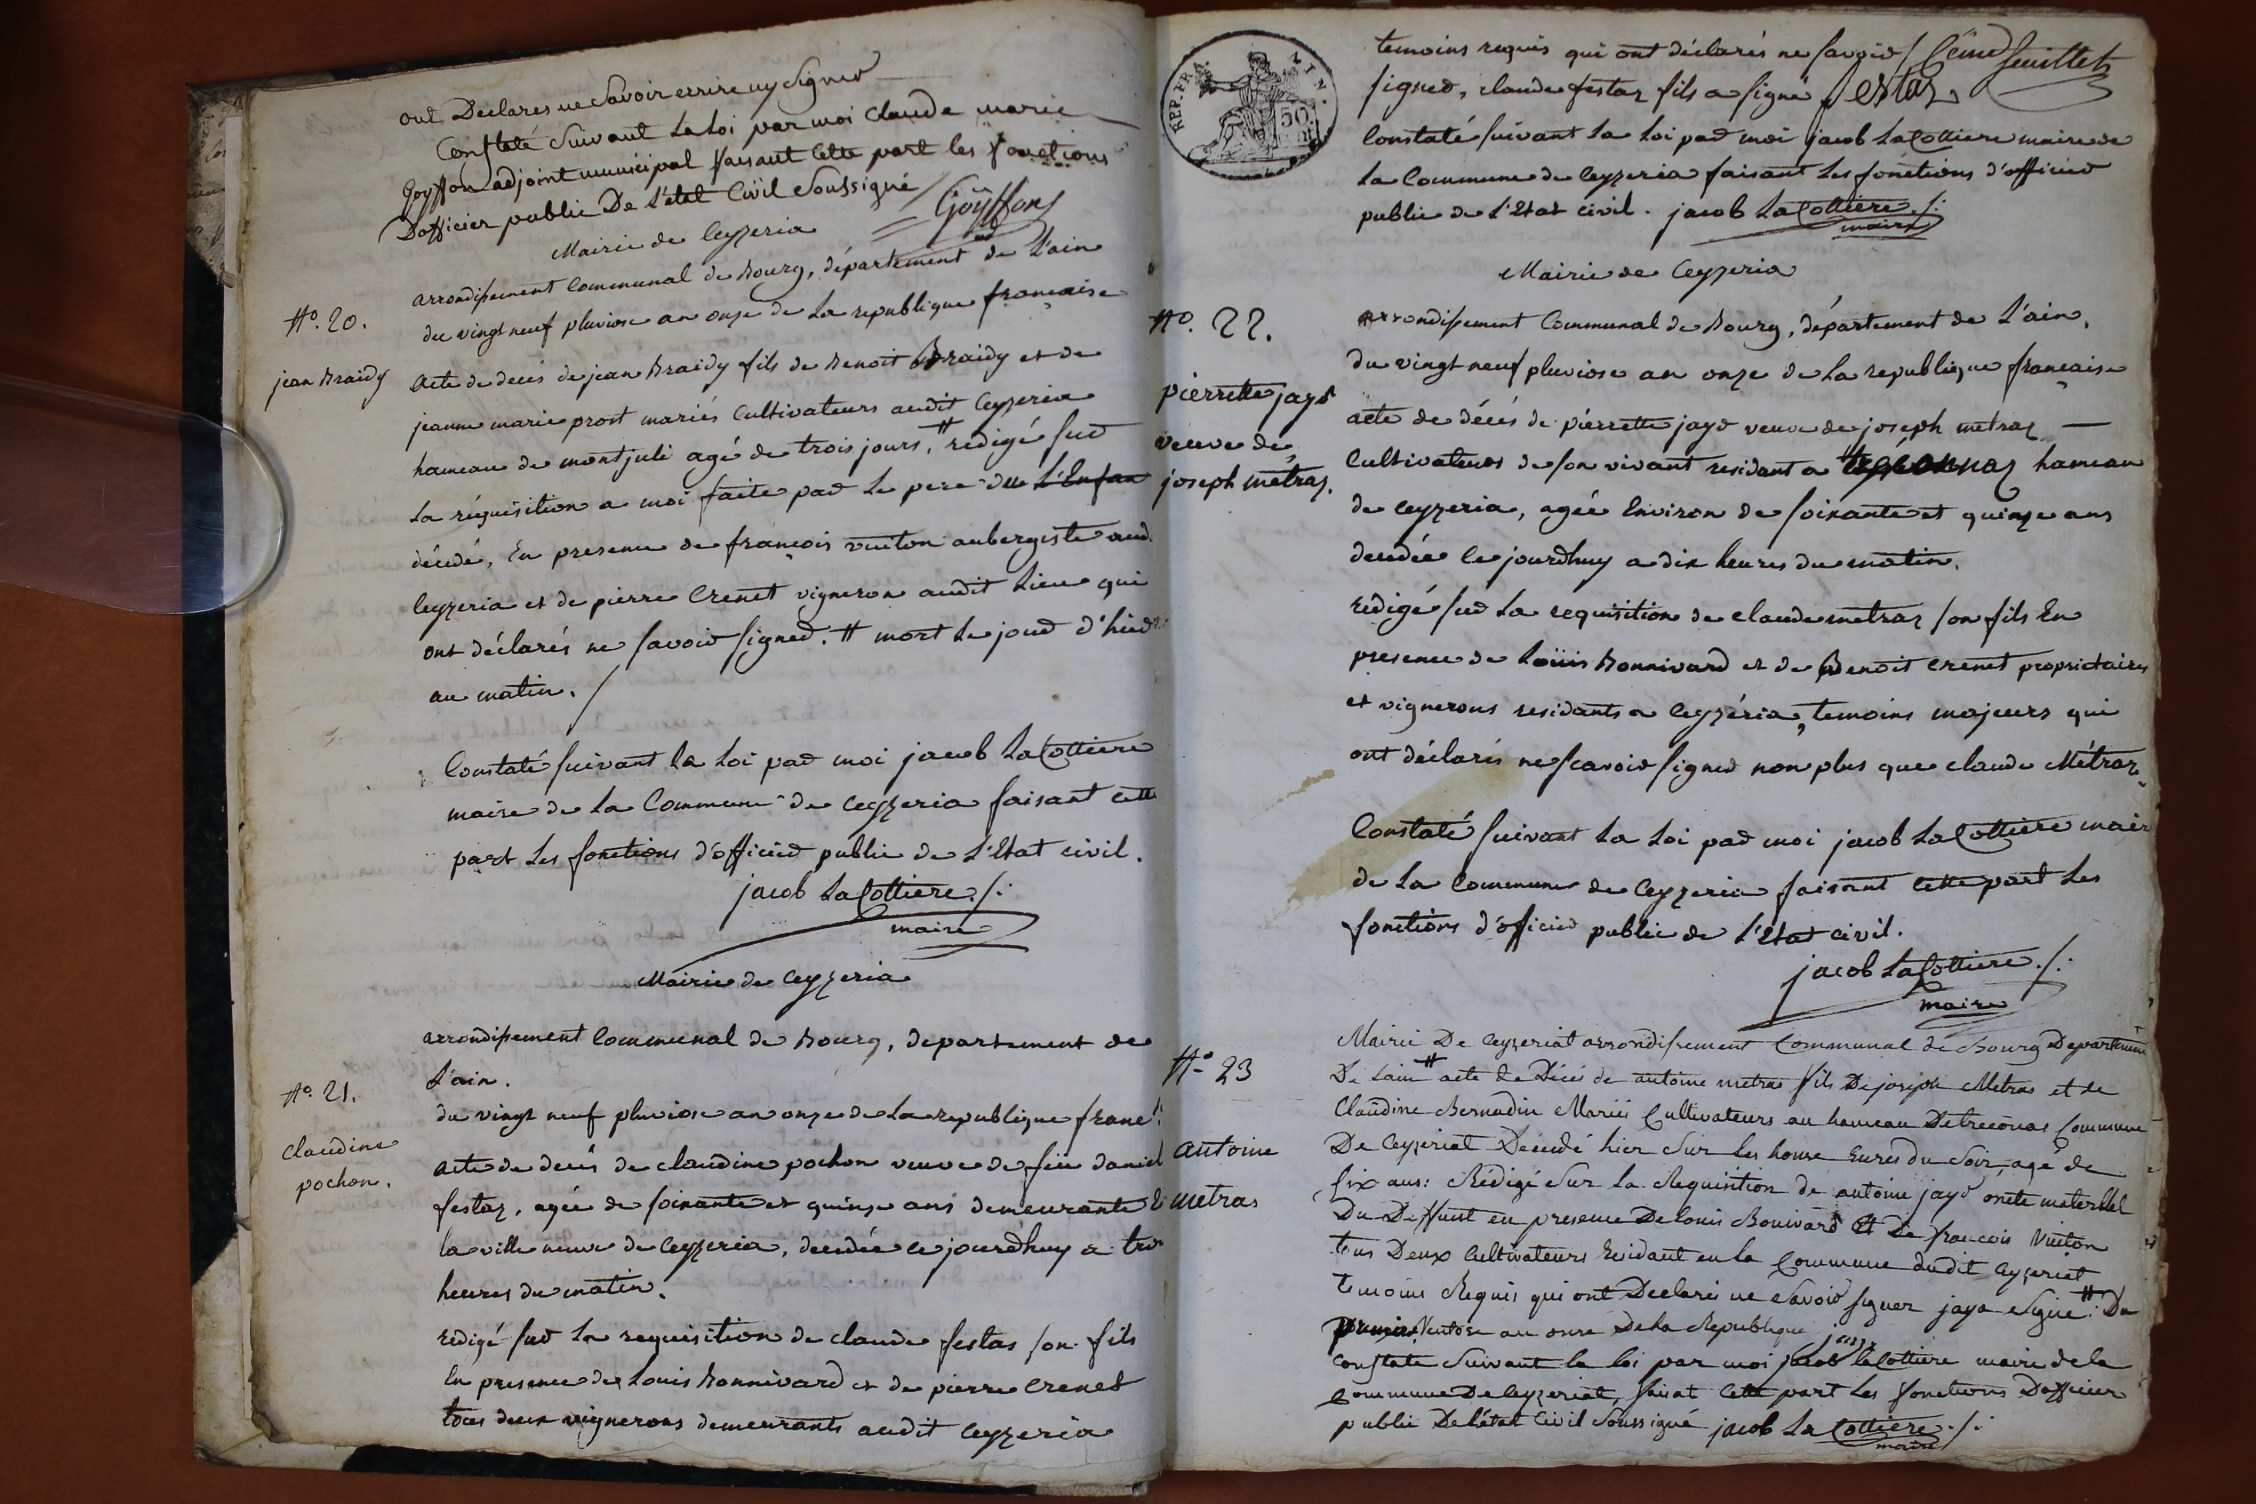 ont Déclarés ne Savoir ecrire ny Signer
Constaté Suivant La Loi par moi Claude marie
Goyffon adjoint municipal faisant Cette part les fonctions
Dofficier public De l'état Civil Soussigné / Goÿffon
Mairie de Ceyzeria
arrondissement Communal de Bourg, département de L'ain
N.º 20.
du vingt neuf pluviose an onze de La republique française
jean Braidy
acte de decés de jean Braidy fils de Benoit Braidy et de
jeanne marie prost mariés Cultivateurs audit Ceyzeria
hameau de montjuli agé de trois jours, # redigé sur
La réquisition a moi faite par Le pere du L'Enfan
décédé, En presence de françois vuiton aubergiste aud.
Ceyzeria et de pierre Crenet vigneron audit Lieu qui
ont déclarés ne Savoir Signer. # mort Le jour d'hier
au matin. /
Constaté Suivant la Loi par moi jacob LaCottiere
maire de La Commune de Ceyzeria faisant cette
part Les fonctions d'officier public de L'Etat civil.
jacob LaCottiere ./.
maire
Mairie de Ceyzeria
arrondissement Communal de Bourg, departement de
L'ain.
N.º 21.
du vingt neuf pluviose an onze de La republique franc
claudine
pochon.
acte de decés de claudine pochon veuve de feu daniel
festaz, agée de soixante et quinze ans demeurante
la ville neuve de Ceyzeria, decedée ce jourdhuy a
heures du matin.
redigé sur La requisition de claude festas son fils
En presence de Louis Bonnivard et de pierre Crenet
tous deux vignerons demeurants audit Ceyzeria
REP. FRA.
50
temoins requis qui ont déclarés ne Savoir /
Signer, claude festaz fils a Signé festaz
Constaté Suivant La Loi par moi jacob LaCottiere maire de
La Commune de Ceyzeria faisant Les fonctions d'officier
public de L'Etat civil. jacob LaCottiere ./.
maire
Mairie de Ceyzeria
N.º 22.
arrondissement Communal de Bourg, département de L'ain.
du vingt neuf pluviose an onze de La republique française
pierrette jayr
veuve de
joseph métraz.
acte de décés de pierrette jayr veuve de joseph metraz
Cultivateurs de son vivant residant a hameau
de Ceyzeria, agée Environ de soixante et quinze ans
decedée ce jourdhuy a dix heures du matin.
redigé sur La requisition de claude metraz son fils En
presence de Loüis Bonnivard et de Benoit Crenet proprietaires
et vignerons residants a Ceyzéria, temoins majeurs qui
ont déclarés ne Scavoir Signer non plus que claude Métraz
Constaté Suivant La Loi par moi jacob LaCottiere maire
de La Commune de Ceyzeria faisant Cette part Les
fonctions d'officier public de L'Etat civil.
jacob LaCottiere ./.
maire
Mairie De Ceyzeriat arrondissement Communal de Bourg Departement
N.º 23
De Lain # acte de Décés de antoine metras fils De joseph Metras et de
Claudine Bernadin Mariés Cultivateurs au hameau De treconas Commune
antoine
metras
De Ceyzeriat Décedé hier Sur Les honze Eures du Soir, agé de
six ans: Rédigé Sur la Requisition de antoine jayr oncle maternel
Du Deffunt en presence De Louis Bonivard Et De francois Vuiton
tous Deux Cultivateurs Residant en la Commune dudit Ceyzeriat
temoins Requis qui ont Declarés ne Savoir Signer jayr Signé # : Du
premier Ventose an onze De La Republique jayr
constaté Suivant la loi par moi jacob laCottiere maire de la
Commune De Ceyzeriat, faisat Cette part Les fonctions D'officier
public De l'état Civil Soussigné jacob LaCottiere ./.
maire